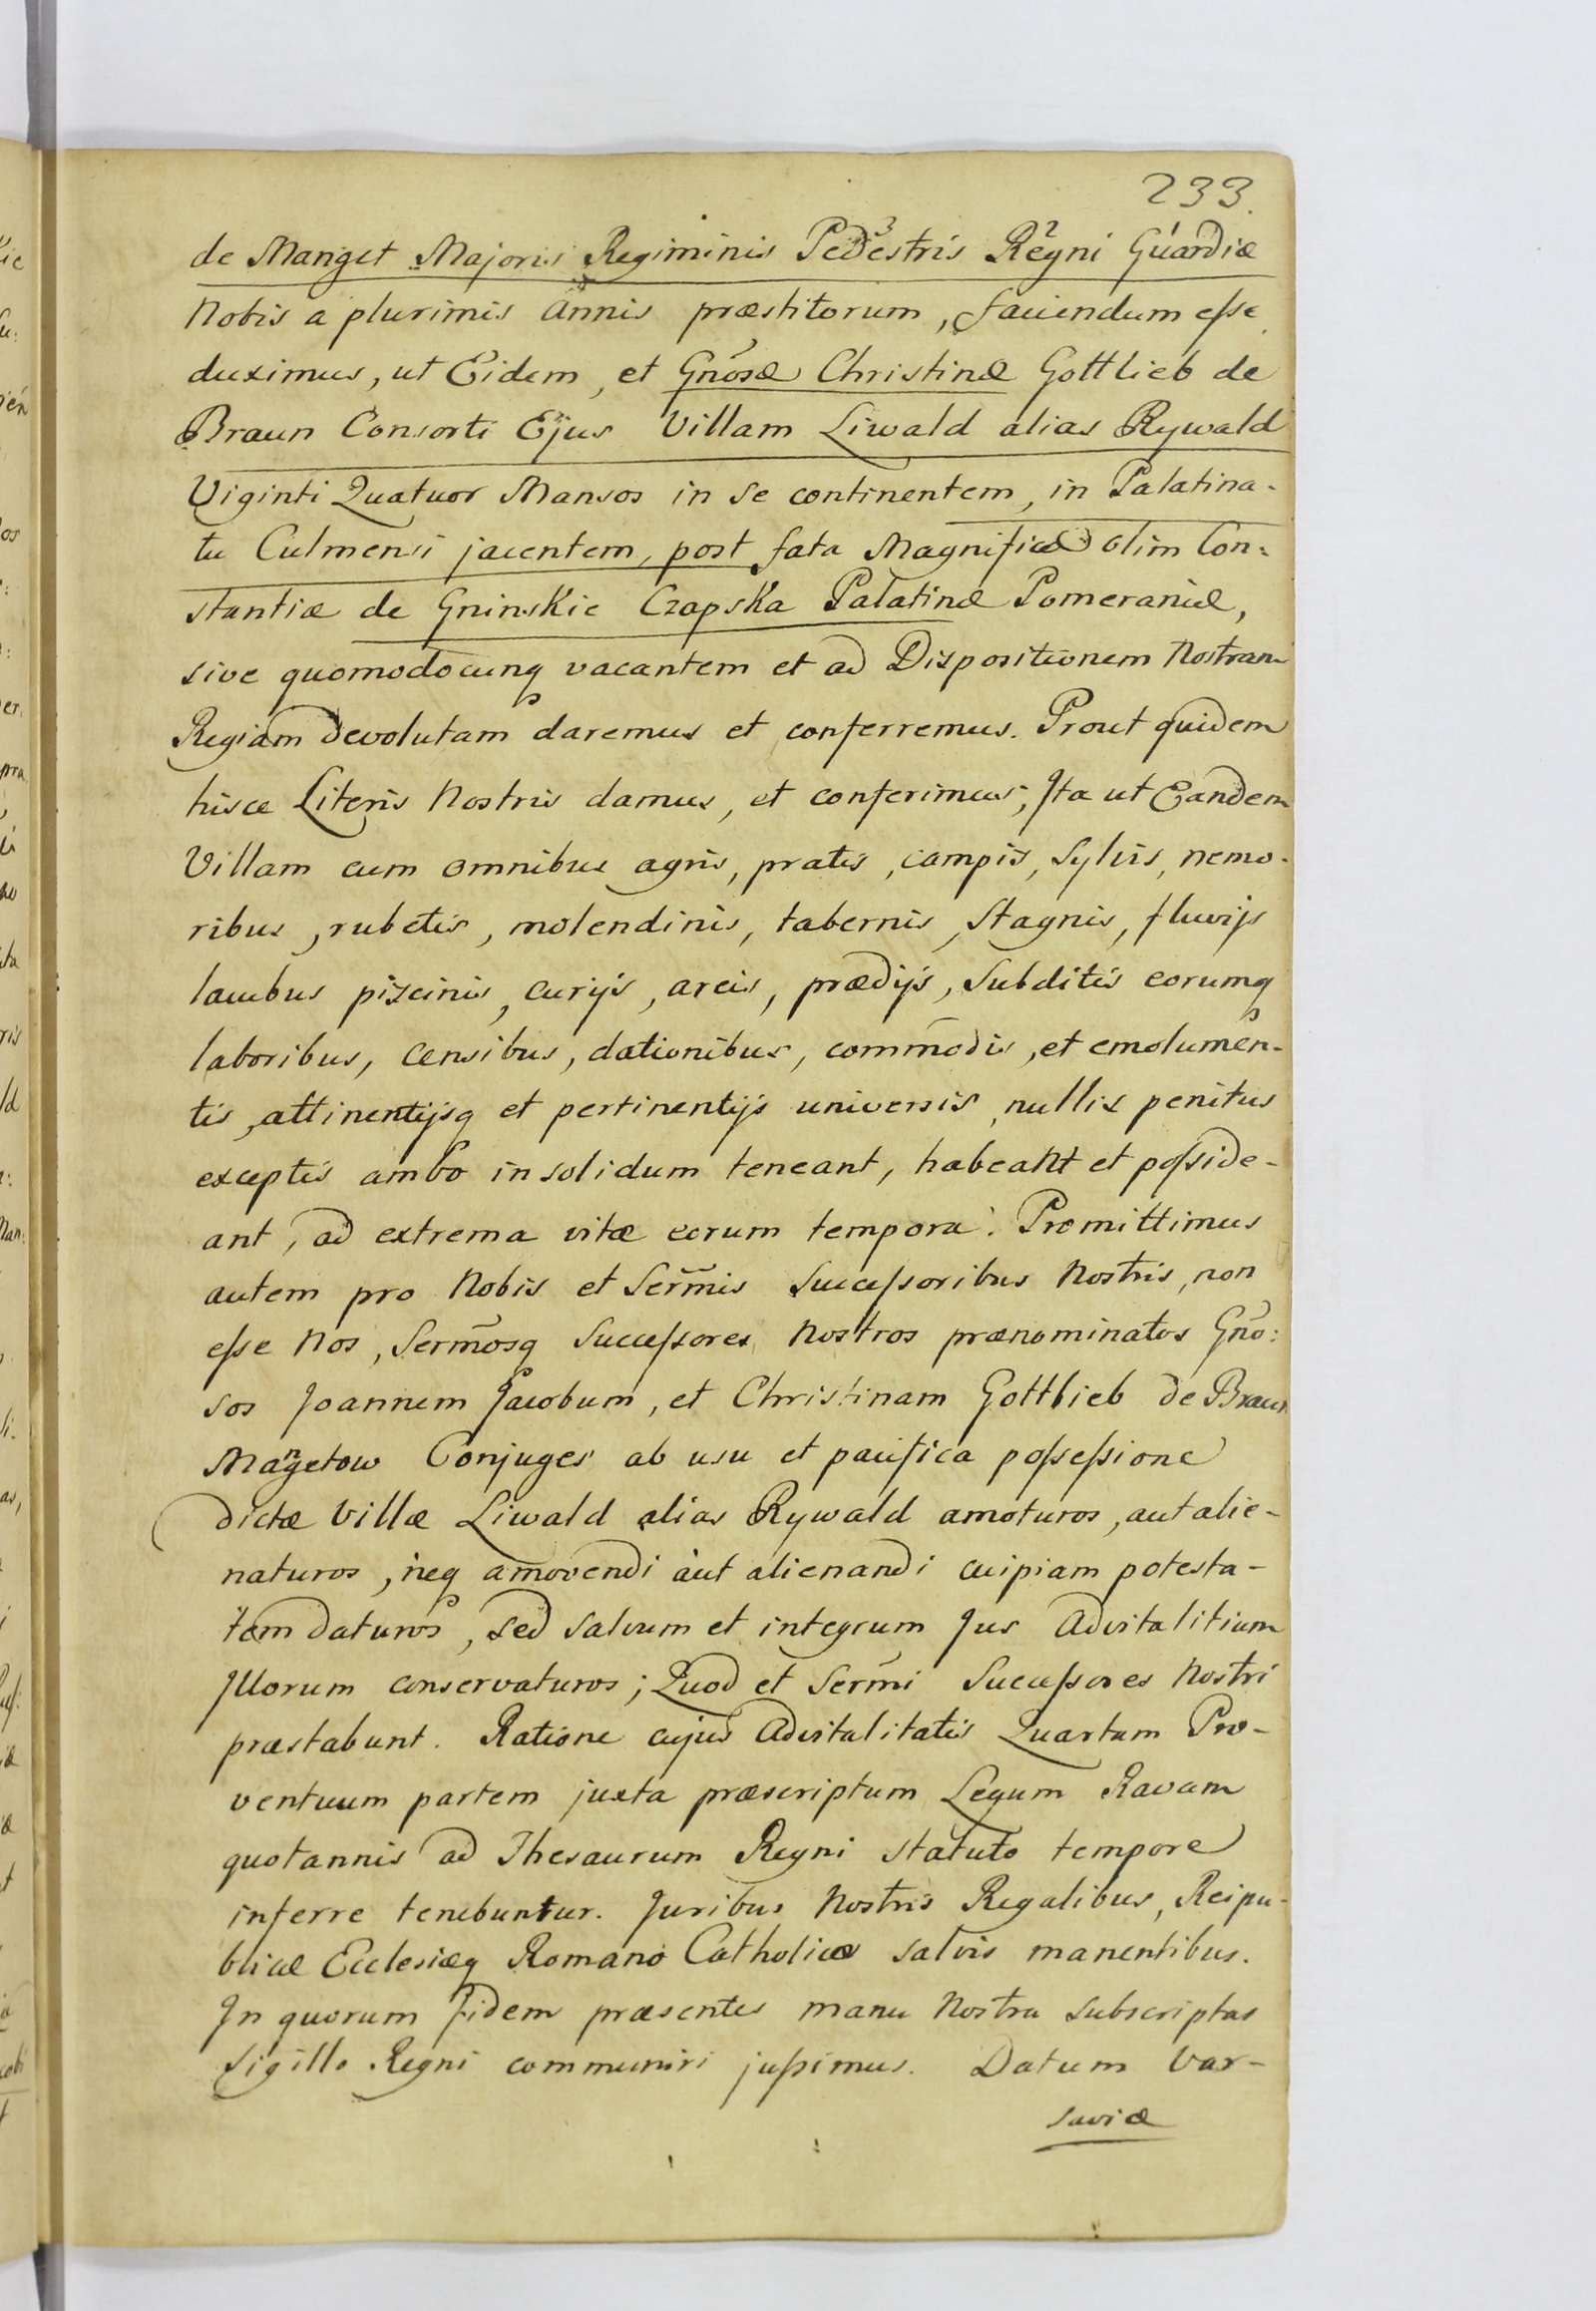 233.
de Manget Majoris Regiminis Pedestris Regni Guardiæ
Nobis a plurimis Annis præstitorum, faciendum eſse
duximus, ut Eidem, et Gnõsæ Christinæ Gottlieb de
Braun Consorti Ejus Villam Liwald alias Rywald
Viginti Quatuor Mansos in se continentem, in Palatina-
tu Culmensi jacentem, post fata Magnificæ olim Con-
stantiæ de Gninskie Czapska Palatinæ Pomeraniæ,
sive quomodocunq vacantem et ad Dispositionem Nostram
Regiam devolutam daremus et conferremus. Prout quidem
hisce Literis Nostris damus, et conferimus; Ita ut Eandem
Villam cum omnibus agris, pratis, campis, Sylvis, nemo-
ribus, rubetis, molendinis, tabernis, Stagnis, fluvijs
lacubus piscinis, curijs, areis, prædijs, Subditis eorumq
laboribus, Censibus, dationibus, com̃modis, et emolumen-
tis, attinentijsq et pertinentijs universis, nullis penitus
exceptis ambo in solidum teneant, habeant et poſside-
ant, ad extrema vitæ eorum tempora. Promittimus
autem pro Nobis et Serm̃is Succeſsoribus Nostris, non
eſse Nos, Serm̃osq Succeſsores Nostros prænominatos Gño:
sos Joannem Jacobum, et Christinam Gottlieb de Braun
Mangetow Conjuges ab usu et pacifica poſseſsione
dictæ Villæ Liwald alias Rywald amoturos, aut alie-
naturos, neq amovendi aut alienandi cuipiam potesta-
tem daturos, sed salvum et integrum Jus Advitalitium
Illorum conservaturos; Quod et Serm̃i Succeſsores Nostri
præstabunt. Ratione cujus Advitalitatis Quartam Pro-
ventuum partem juxta præscriptum Legum Ravam
quotannis ad Thesaurum Regni statuto tempore
inferre tenebuntur. Juribus Nostris Regalibus, Reipu-
blicæ Ecclesiæq Romano Catholicæ salvis manentibus.
In quorum fidem præsentes manu Nostra subscriptas
Sigillo Regni communiri juſsimus. Datum Var-
saviæ